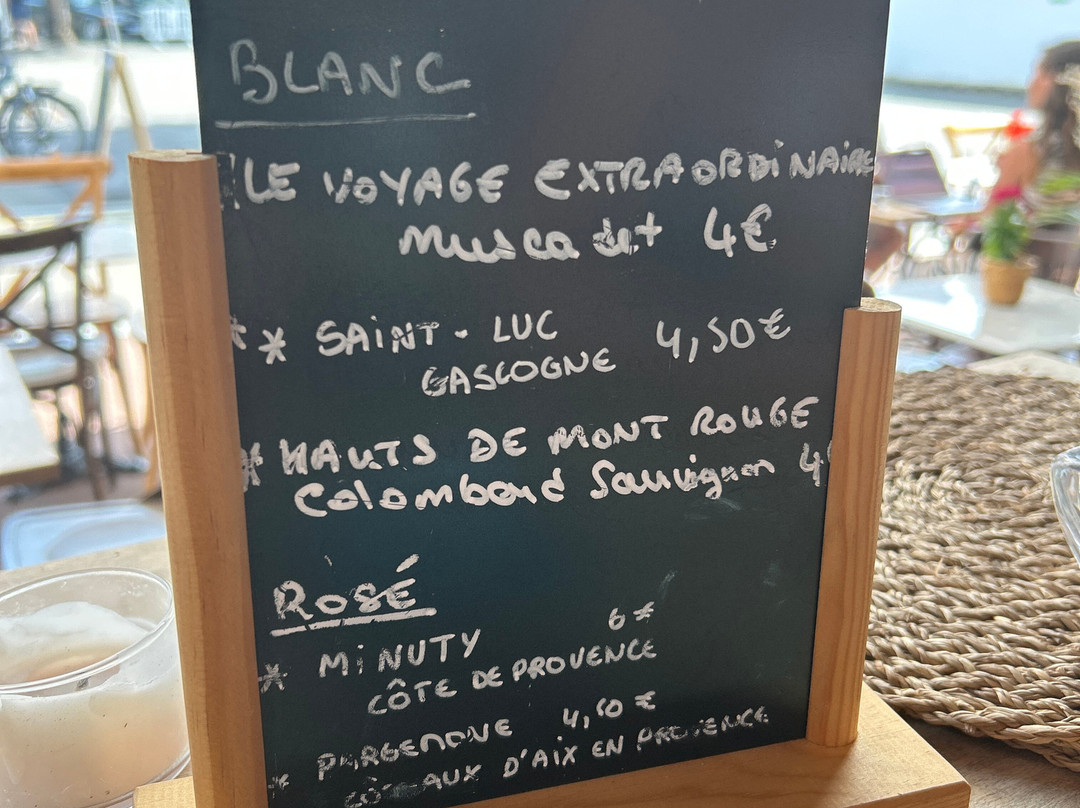 BLANC
LE VOYAGE EXTRAORDINAIRE
Muscadet 4€
** SAINT-LUC 4,50€
GASCOGNE
* HAUTS DE MONT ROUGE
Colombard Sauvignon 4
ROSÉ
* MINUTY 6€
CÔTE DE PROVENCE
* 4,50€
CÔTEAUX D'AIX EN PROVENCE